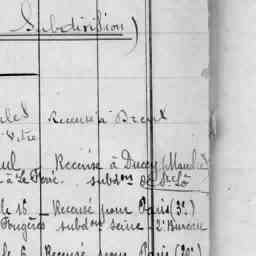 Subdivision)
Recensé à Brest
Recensé à Ducey (Manche)
à Le Ferré. subdon de St Lô
le 16 _ Recensé pour Paris (3e.)
Fougères subdon Seine - 2e Bureau
le 6 Recensé pour Paris (20e.)